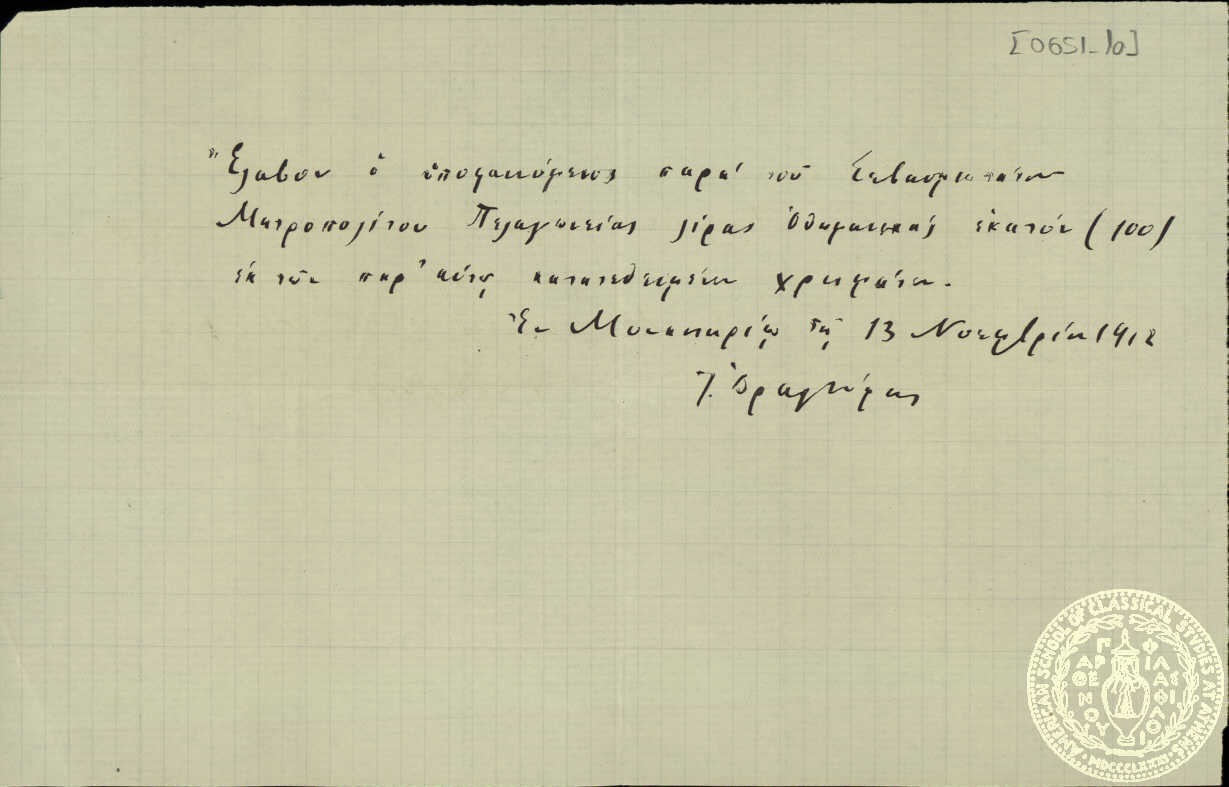 [0651_10]
Ἔλαβον ὁ ὑποφαινόμενος παρὰ τοῦ Σεβασμιωτάτου
Μητροπολίτου Πελαγωνείας λίρας Ὀθωμανικάς ἑκατόν (100)
ἐκ τῶν παρ' αὐτῷ κατατεθειμένων χρημάτων.
Ἐν Μοναστηρίῳ τῇ 13 Νοεμβρίου 1912
AMERICAN SCHOOL OF CLASSICAL STUDIES AT ATHENS
ΠΑΡΘΕΝΟΥ ΦΙΛΑΣ ΦΙΛΟΙ
MDCCCLXXXI